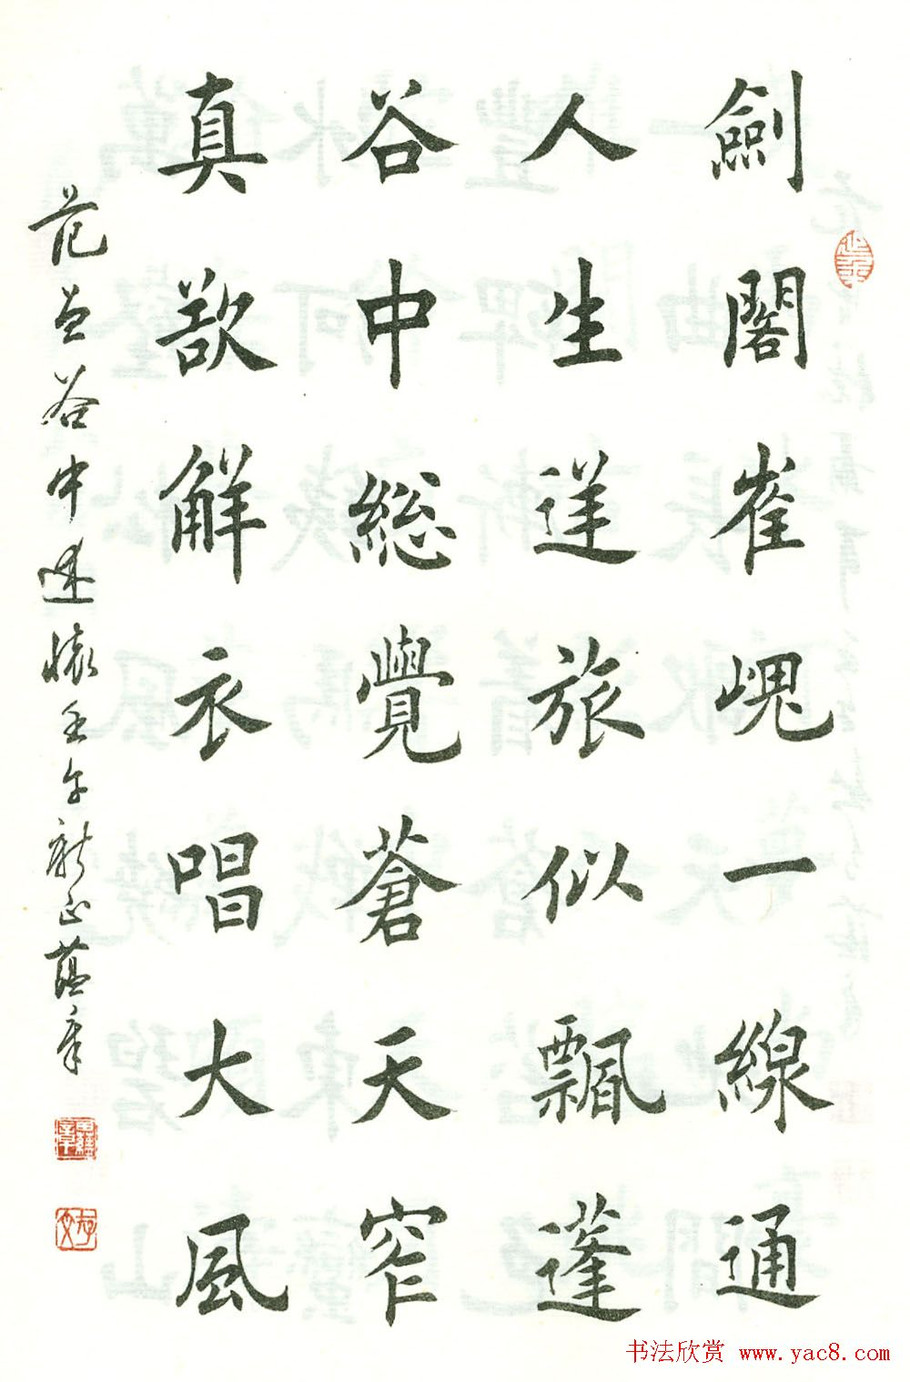 劍閣崔嵬一線通
人生逆旅似飄蓬
谷中総覺蒼天窄
真欲解衣唱大風
范曾谷中述懷壬午新正蘊章
书法欣赏 www.yac8.com